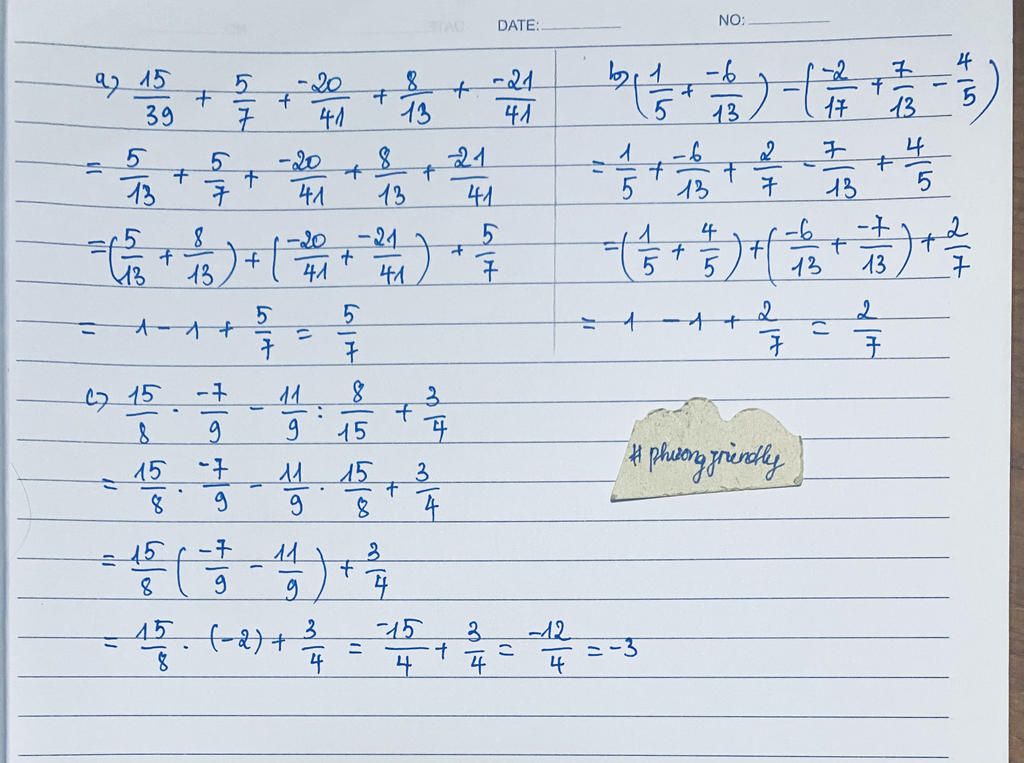 DATE: NO:
a) 15/39 + 5/7 + -20/41 + 8/13 + -21/41
= 5/13 + 5/7 + -20/41 + 8/13 + -21/41
= (5/13 + 8/13) + (-20/41 + -21/41) + 5/7
= 1 - 1 + 5/7 = 5/7
b) (1/5 + -6/13) - (-2/17 + 7/13 - 4/5)
= 1/5 + -6/13 + 2/7 - 7/13 + 4/5
= (1/5 + 4/5) + (-6/13 + -7/13) + 2/7
= 1 - 1 + 2/7 = 2/7
c) 15/8 . -7/9 - 11/9 : 8/15 + 3/4
= 15/8 . -7/9 - 11/9 . 15/8 + 3/4
= 15/8 (-7/9 - 11/9) + 3/4
= 15/8 . (-2) + 3/4 = -15/4 + 3/4 = -12/4 = -3
# phuongfriendly